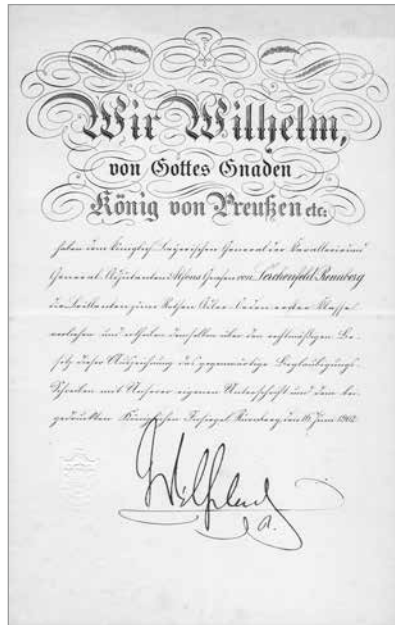 Wir Wilhelm,
von Gottes Gnaden
König von Preußen etc.
haben dem Königlich Bayerischen General der Kavallerie und
General-Adjutanten Alfons Grafen von Lerchenfeld-Brennberg
die Brillanten zum Rothen Adler-Orden erster Klasse
verliehen und ertheilen demselben über den rechtmäßigen Be-
sitz dieser Auszeichnung das gegenwärtige Beglaubigungs-
Schreiben mit Unserer eigenen Unterschrift und dem bei-
gedruckten Königlichen Insiegel. Nürnberg, den 16. Juni 1902.
Wilhelm
R.